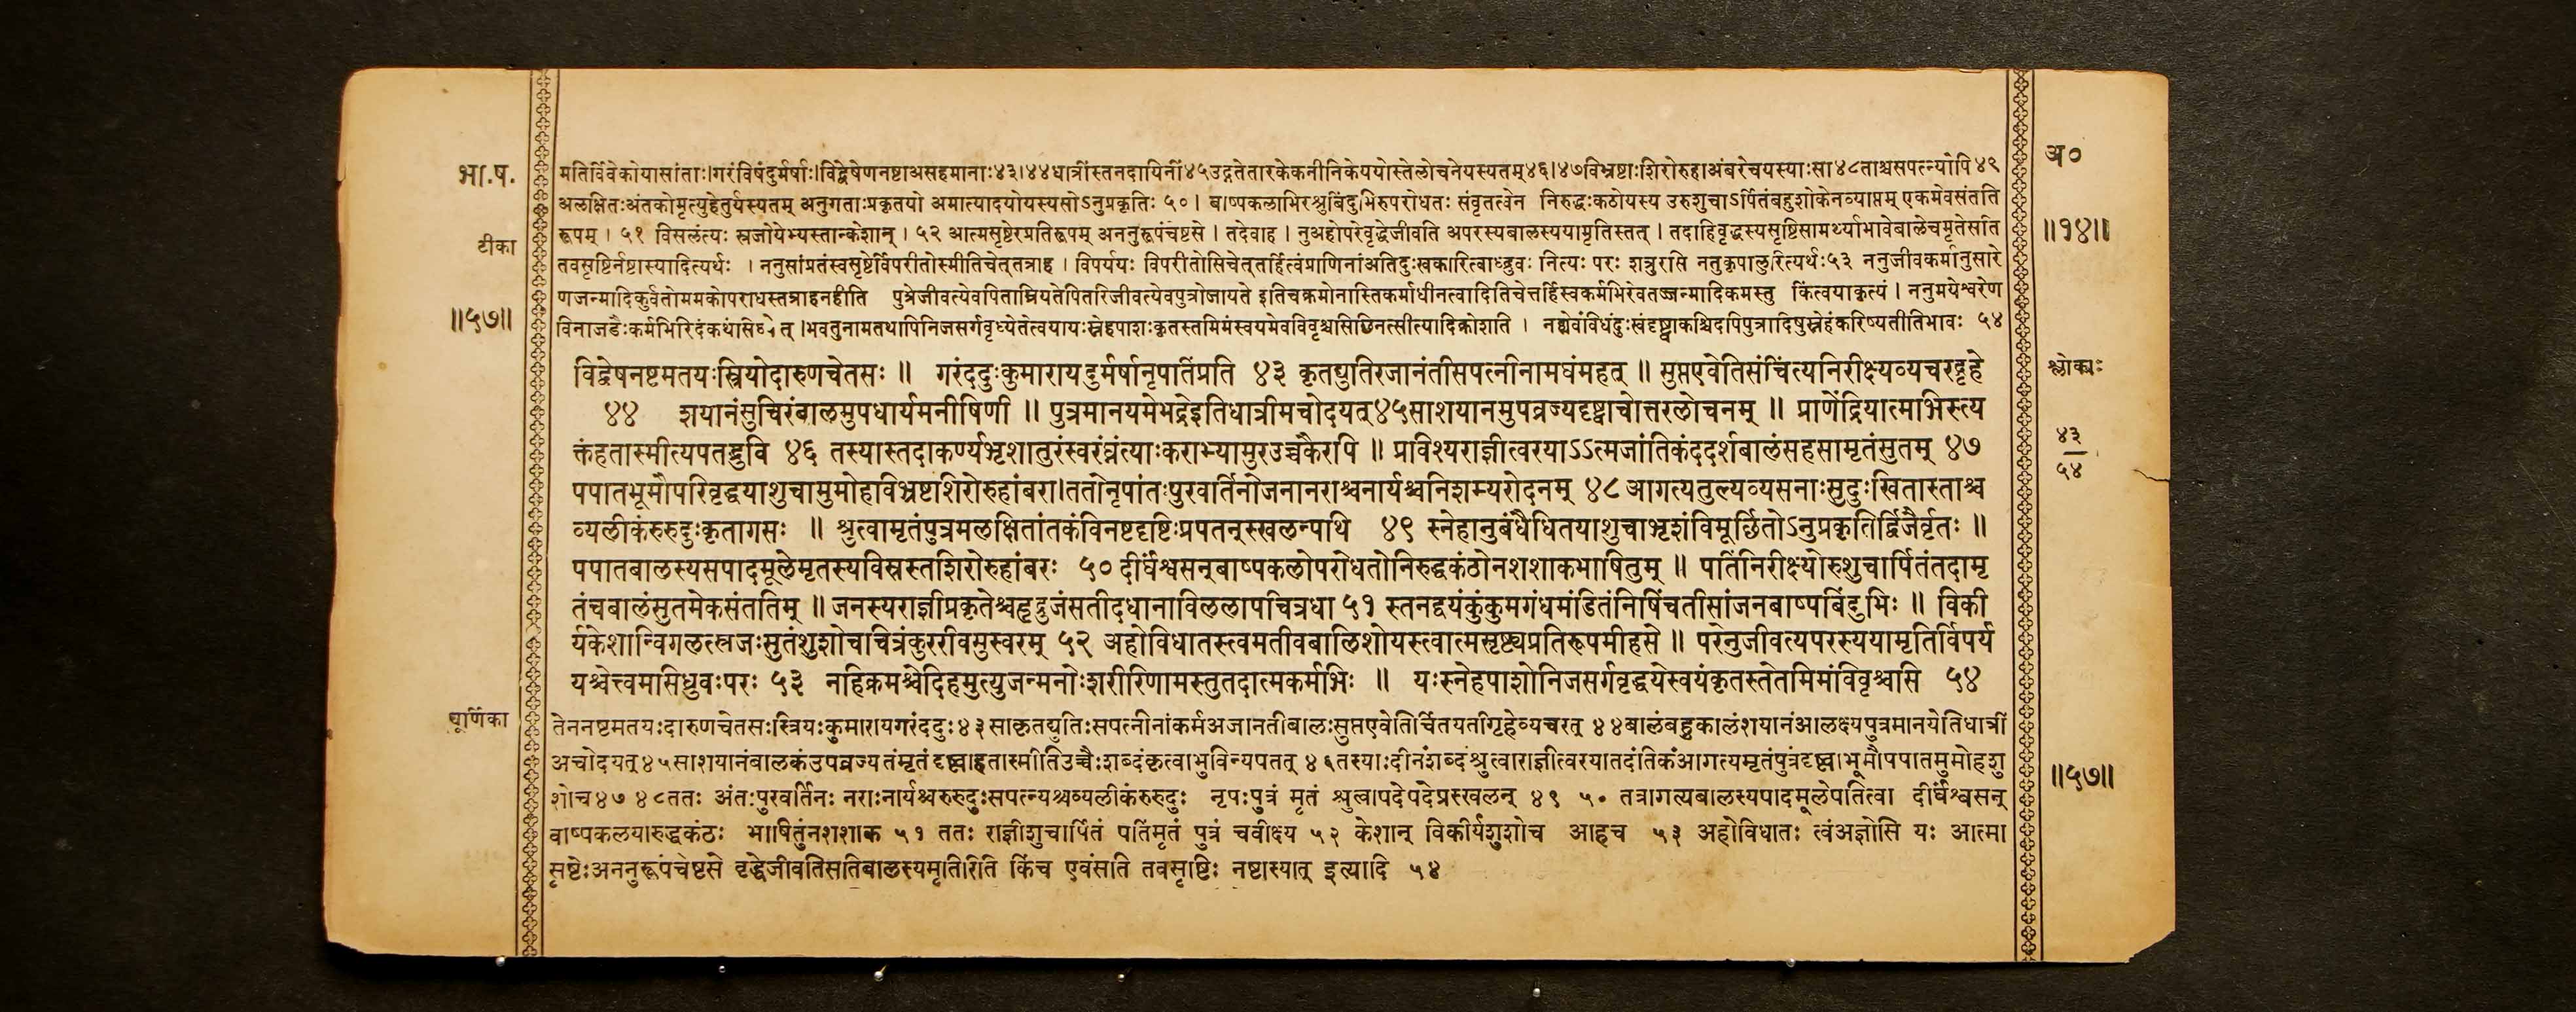 भा.ष.
टीका
॥५७॥
चूर्णिका
मतिर्विवेकोयासांताः।गरंविषंदुर्मर्षाः।विद्वेषेणनष्टाअसहमानाः४३।४४धात्रींस्तनदायिनीं४५उद्गतेतारकेकनीनिकेययोस्तेलोचनेयस्यतम्४६।४७विभ्रष्टाःशिरोरुहाअंबरेचयस्याःसा४८ताश्चसपत्न्योपि४९
अलक्षितःअंतकोमृत्युहेतुर्यस्यतम् अनुगताःप्रकृतयो अमात्यादयोयस्यसोऽनुप्रकृतिः ५०। बाष्पकलाभिरश्रुबिंदुभिरुपरोधतः संवृतत्वेन निरुद्धःकठोयस्य उरुशुचाऽर्पितंबहुशोकेनव्याप्तम् एकमेवसंतति
रूपम् । ५१ विसलंत्यः स्रजोयेभ्यस्तान्केशान् । ५२ आत्मसृष्टेरप्रतिरूपम् अननुरूपंचेष्टसे । तदेवाह । नुअहोपरेवृद्धेजीवति अपरस्यबालस्ययामृतिस्तत् । तदाहिवृद्धस्यसृष्टिसामर्थ्याभावेबालेचमृतेसति
तवसृष्टिर्नष्टास्यादित्यर्थः । ननुसांप्रतंस्वसृष्टेर्विपरीतोस्मीतिचेत्तत्राह । विपर्ययः विपरीतोसिचेत्तर्हित्वंप्राणिनांअतिदुःखकारित्वाध्द्रुवः नित्यः परः शत्रुरसि नतुकृपालुरित्यर्थः५३ ननुजीवकर्मानुसारे
णजन्मादिकुर्वतोममकोपराधस्तत्राहनहीति पुत्रेजीवत्येवपिताम्रियतेपितरिजीवत्येवपुत्रोजायते इतिचक्रमोनास्तिकर्माधीनत्वादितिचेत्तर्हिस्वकर्मभिरेवतज्जन्मादिकमस्तु किंत्वयाकृत्यं । ननुमयेश्वरेण
विनाजडैःकर्मभिरिदंकथंसिध्येत् ।भवतुनामतथापिनिजसर्गवृध्येतेत्वयायःस्नेहपाशःकृतस्तमिमंस्वयमेवविवृश्चसिछिनत्सीत्यादिक्रोशति । नह्येवंविधंदुःखंदृष्ट्वाकश्चिदपिपुत्रादिषुस्नेहंकरिष्यतीतिभावः ५४
विद्वेषनष्टमतयःस्त्रियोदारुणचेतसः ॥ गरंददुःकुमारायदुर्मर्षानृपतिंप्रति ४३ कृतद्युतिरजानंतीसपत्नीनामघंमहत् ॥ सुप्तएवेतिसंचिंत्यनिरीक्ष्यव्यचरद्गृहे
४४ शयानंसुचिरंबालमुपधार्यमनीषिणी ॥ पुत्रमानयमेभद्रेइतिधात्रीमचोदयत्४५साशयानमुपव्रज्यदृष्ट्वाचोत्तरलोचनम् ॥ प्राणेंद्रियात्माभिस्त्य
क्तंहतास्मीत्यपतद्भुवि ४६ तस्यास्तदाकर्ण्यभृशातुरंस्वरंघ्नंत्याःकराभ्यामुरउच्चकैरपि ॥ प्रविश्यराज्ञीत्वरयाऽऽत्मजांतिकंददर्शबालंसहसामृतंसुतम् ४७
पपातभूमौपरिवृद्धयाशुचामुमोहविभ्रष्टशिरोरुहांबरा।ततोनृपांतःपुरवर्तिनोजनानराश्चनार्यश्चनिशम्यरोदनम् ४८ आगत्यतुल्यव्यसनाःसुदुःखितास्ताश्च
व्यलीकंरुरुदुःकृतागसः ॥ श्रुत्वामृतंपुत्रमलक्षितांतकंविनष्टदृष्टिःप्रपतन्स्खलन्पथि ४९ स्नेहानुबंधैधितयाशुचाभृशंविमूर्छितोऽनुप्रकृतिर्द्विजैर्वृतः ॥
पपातबालस्यसपादमूलेमृतस्यविस्रस्तशिरोरुहांबरः ५० दीर्घंश्वसन्बाष्पकलोपरोधतोनिरुद्धकंठोनशशाकभाषितुम् ॥ पतिंनिरीक्ष्योरुशुचार्पितंतदामृ
तंचबालंसुतमेकसंततिम् ॥ जनस्यराज्ञीप्रकृतेश्चहृद्रुजंसतीदधानाविललापचित्रधा ५१ स्तनद्वयंकुंकुमगंधमंडितंनिषिंचतीसांजनबाष्पबिंदुभिः ॥ विकी
र्यकेशान्विगलत्स्रजःसुतंशुशोचचित्रंकुररीवसुस्वरम् ५२ अहोविधातस्त्वमतीवबालिशोयस्त्वात्मसृष्ट्यप्रतिरूपमीहसे ॥ परेनुजीवत्यपरस्ययामृतिर्विपर्य
यश्चेत्त्वमसिध्रुवःपरः ५३ नहिक्रमश्चेदिहमृत्युजन्मनोःशरीरिणामस्तुतदात्मकर्मभिः ॥ यःस्नेहपाशोनिजसर्गवृद्धयेस्वयंकृतस्तेतमिमंविवृश्चसि ५४
तेननष्टमतयःदारुणचेतसःस्त्रियःकुमारायगरंददुः४३साकृतद्युतिःसपत्नीनांकर्मअजानतीबालःसुप्तएवेतिचिंतयतीगृहेव्यचरत् ४४बालंबहुकालंशयानंआलक्ष्यपुत्रमानयेतिधात्रीं
अचोदयत्४५साशयानंबालकंउपव्रज्यतंमृतंदृष्ट्वाहतास्मीतिउच्चैःशब्दंकृत्वाभुविन्यपतत् ४६तस्याःदीनंशब्दंश्रुत्वाराज्ञीत्वरयातदंतिकंआगत्यमृतंपुत्रंदृष्ट्वाभूमौपपातमुमोहशु
शोच४७ ४८ततः अंतःपुरवर्तिनः नराःनार्यश्चरुरुदुःसपत्न्यश्चव्यलीकंरुरुदुः नृपःपुत्रं मृतं श्रुत्वापदेपदेप्रस्खलन् ४९ ५० तत्रागत्यबालस्यपादमूलेपतित्वा दीर्घंश्वसन्
बाष्पकलयारुद्धकंठः भाषितुंनशशाक ५१ ततः राज्ञीशुचार्पितं पतिंमृतं पुत्रं चवीक्ष्य ५२ केशान् विकीर्यशुशोच आहच ५३ अहोविधातः त्वंअज्ञोसि यः आत्मा
सृष्टेःअननुरूपंचेष्टसे वृद्धेजीवतिसतिबालस्यमृतिरिति किंच एवंसति तवसृष्टिः नष्टास्यात् इत्यादि ५४
अ०
॥१४॥
श्लोकाः
४३
५४
॥५७॥